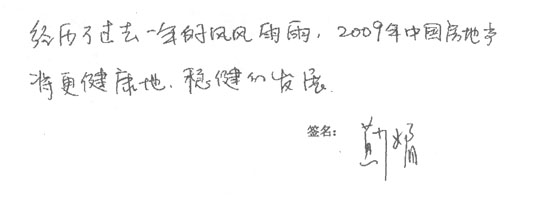 经历了过去一年的风风雨雨，2009年中国房地产
将更健康地、稳健的发展
签名：